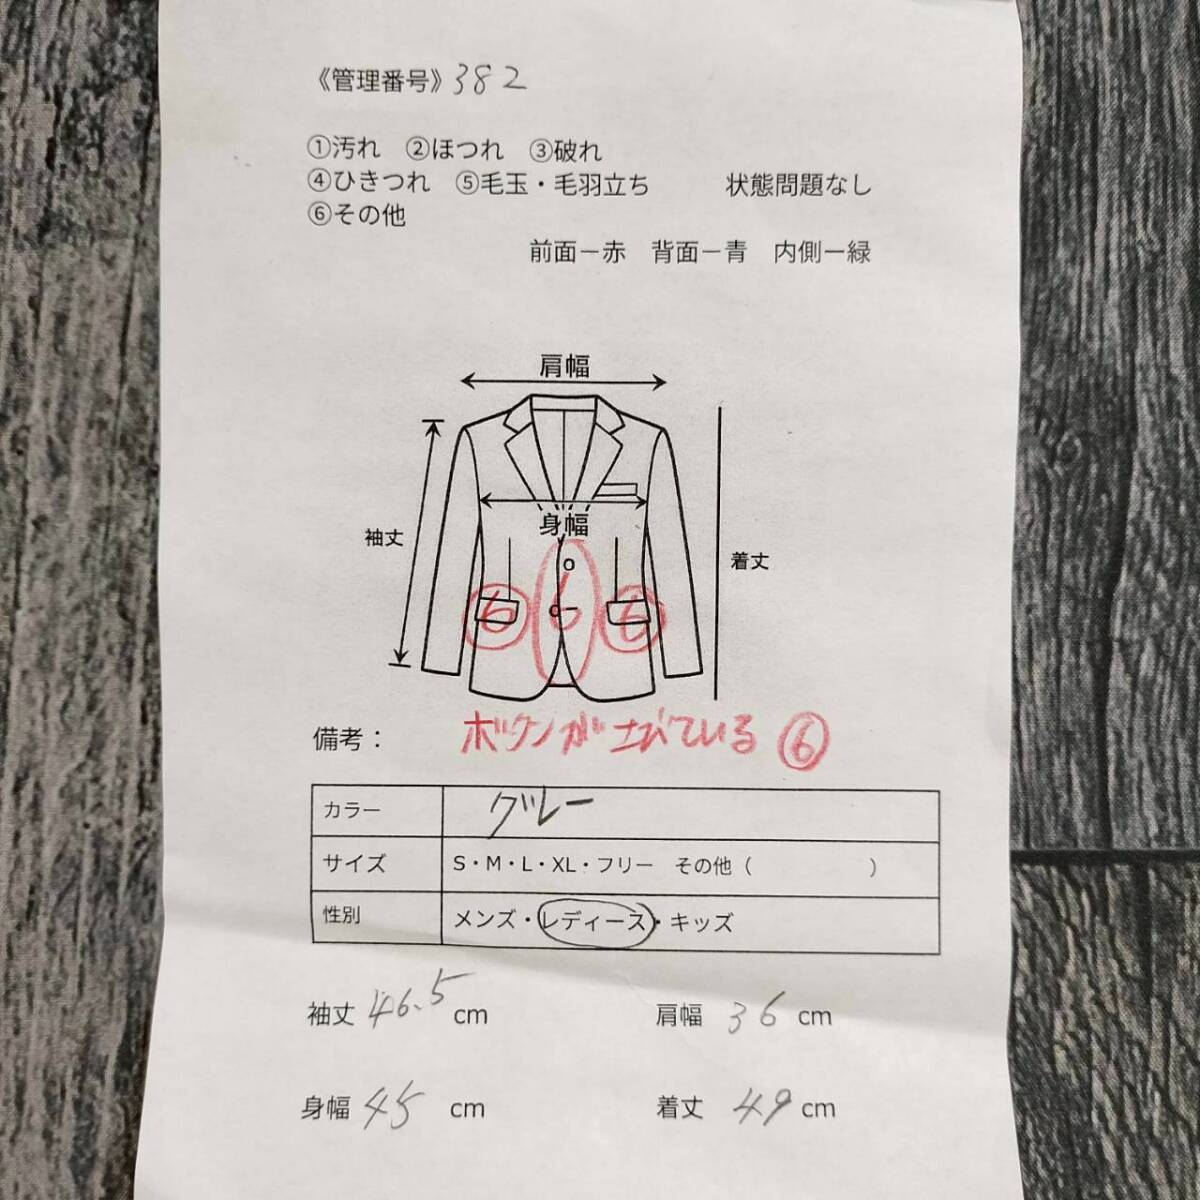 《管理番号》382
①汚れ ②ほつれ ③破れ
④ひきつれ ⑤毛玉・毛羽立ち 状態問題なし
⑥その他
前面ー赤 背面ー青 内側ー緑
肩幅
身幅
袖丈
着丈
⑥ 6 ⑥
備考： ボタンが錆びている ⑥
カラー グレー
サイズ S・M・L・XL・フリー その他（ ）
性別 メンズ・レディース・キッズ
袖丈 46.5 cm 肩幅 36 cm
身幅 45 cm 着丈 49 cm